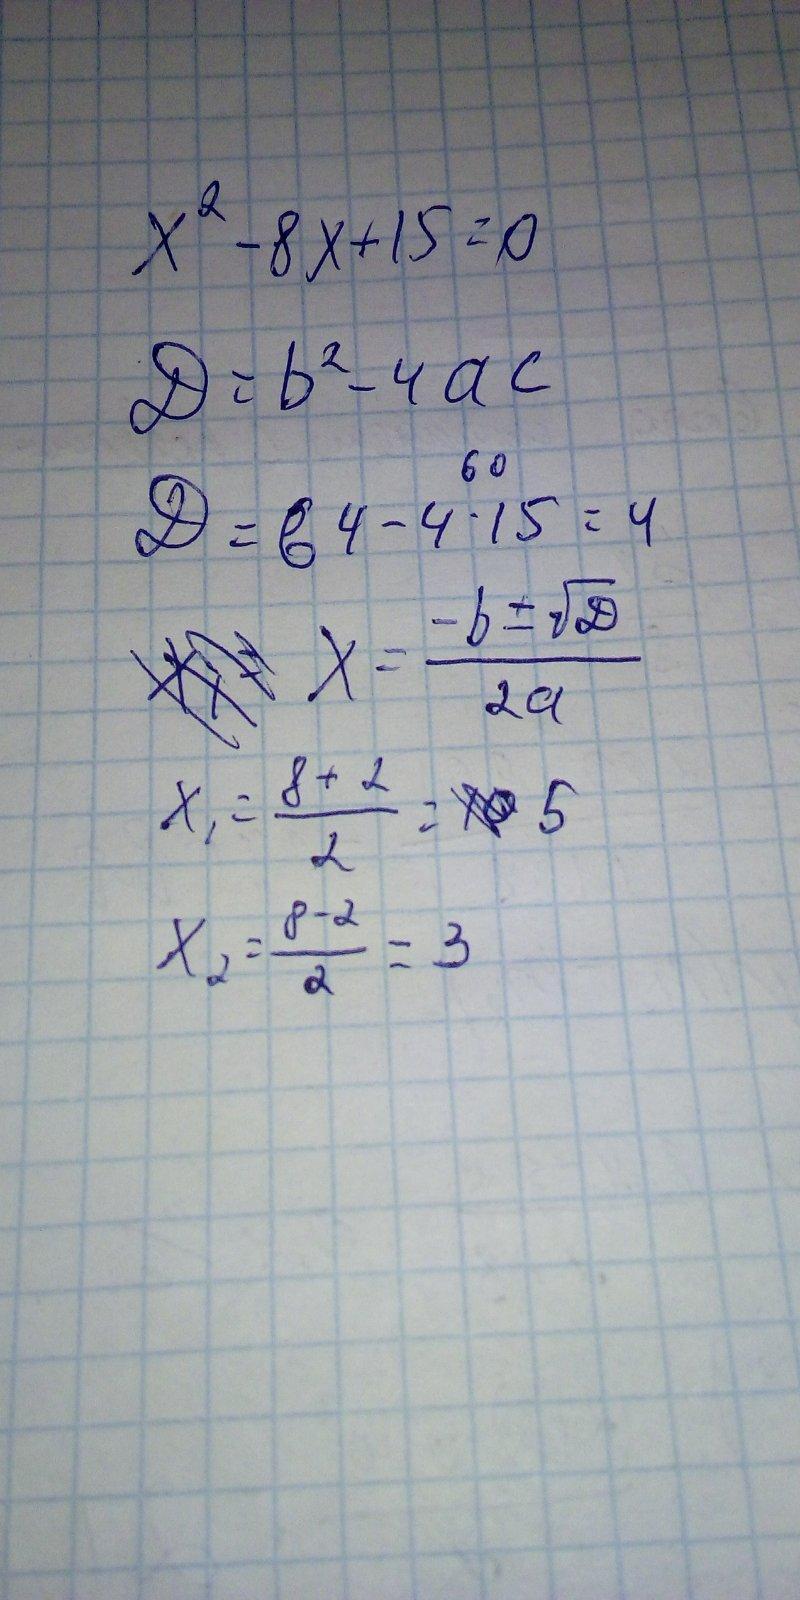 x² - 8x + 15 = 0
D = b² - 4ac
60
D = 64 - 4·15 = 4
x = (-b ± √D) / 2a
x₁ = (8 + 2) / 2 = 5
x₂ = (8 - 2) / 2 = 3